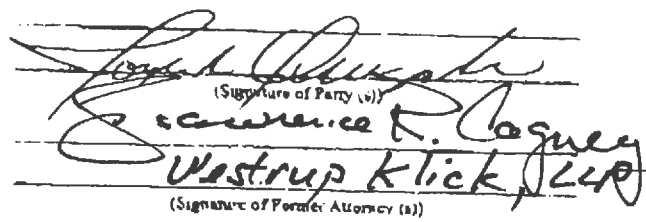 (Signature of Party (s))
Lawrence R. Cagney
Westrup Klick, LLP
(Signature of Former Attorney (s))